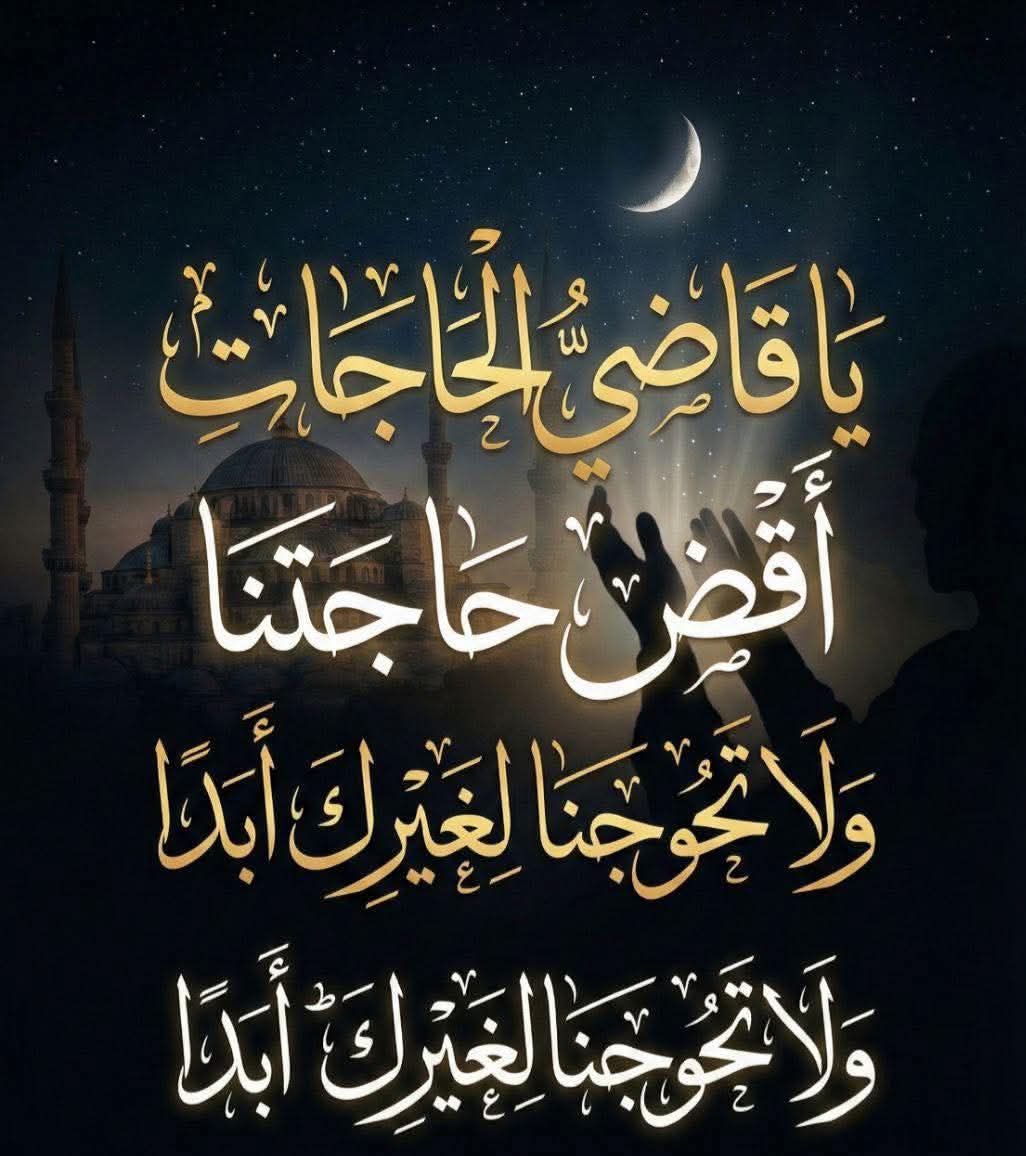 يَا قَاضيُّ الْحَاجَاتِ
أَقْض حَاجَتنَا
وَلَا تَحُوجَنَا لِغَيْرِكَ أَبَدًا
وَلَا تَحُوجَنَا لِغَيْرِكَ أَبَدًا